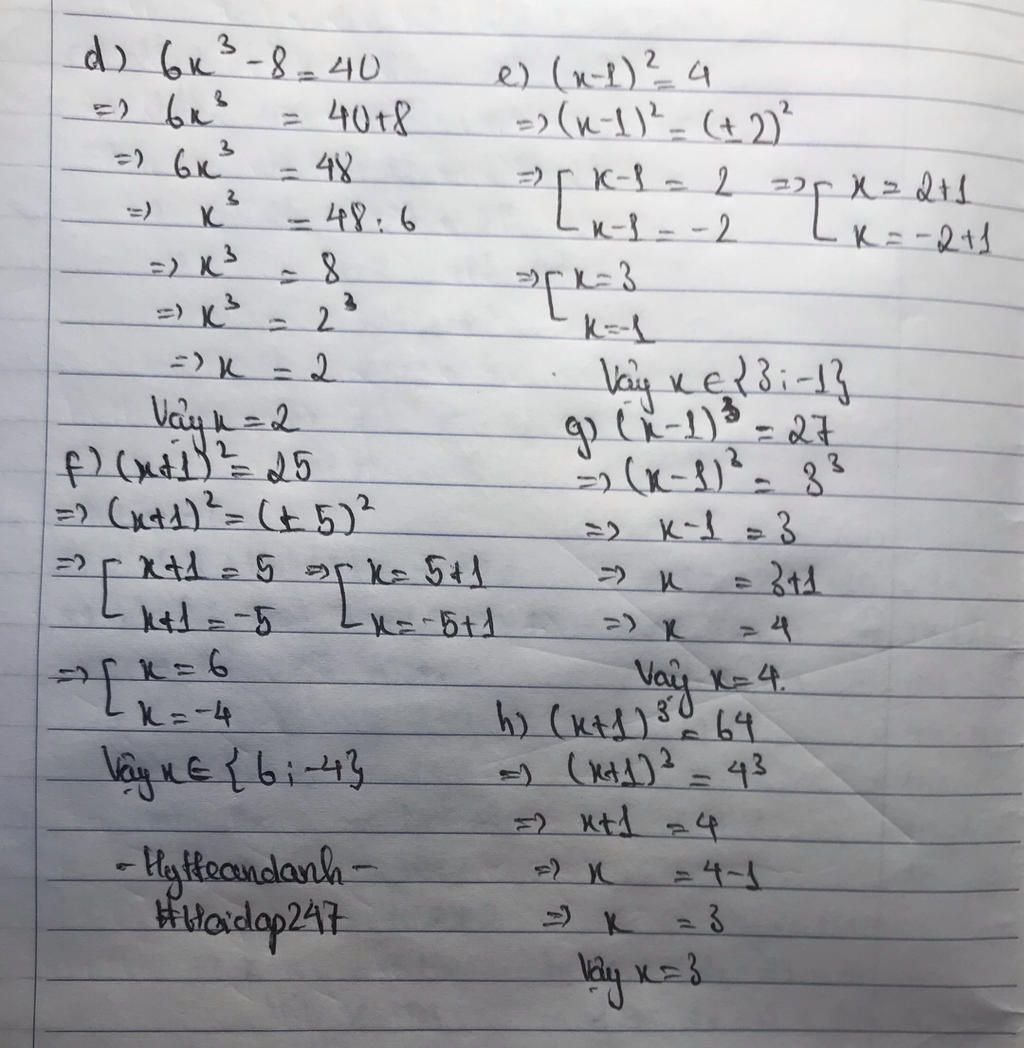 d) 6x³ - 8 = 40
=> 6x³ = 40+8
=> 6x³ = 48
=> x³ = 48 : 6
=> x³ = 8
=> x³ = 2³
=> x = 2
Vậy x = 2
f) (x+1)² = 25
=> (x+1)² = (± 5)²
=> [ x+1 = 5 => [ x = 5+1
x+1 = -5 x = -5+1
=> [ x = 6
x = -4
Vậy x ∈ {6 ; -4}
- HyHeandanh -
#Hoidap247
e) (x-1)² = 4
=> (x-1)² = (± 2)²
=> [ x-1 = 2 => [ x = 2+1
x-1 = -2 x = -2+1
=> [ x = 3
x = -1
Vậy x ∈ {3 ; -1}
g) (x-1)³ = 27
=> (x-1)³ = 3³
=> x-1 = 3
=> x = 3+1
=> x = 4
Vậy x = 4.
h) (x+1)³ = 64
=> (x+1)³ = 4³
=> x+1 = 4
=> x = 4-1
=> x = 3
Vậy x = 3